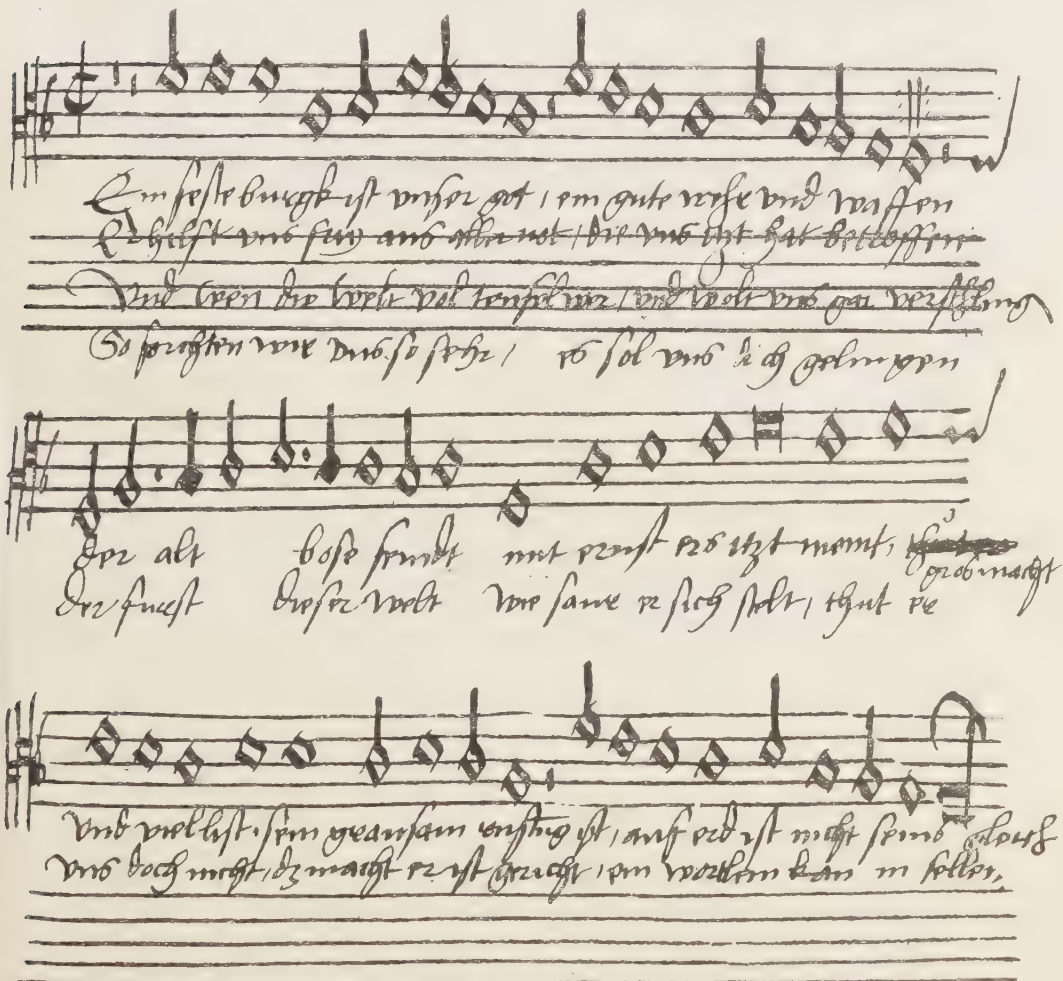 Ein feste burgk ist vnser got, ein gute wehr vnd waffen
Er hilft vns frey aus aller not, die vns itzt hat betroffen
Vnd wen die welt vol teufel wer, vnd wolt vns gar verschling
So furchten wir vns so sehr, es sol vns doch gelingen
der alt bose feindt mit ernst ers itzt meint,
gros macht
der furst dieser welt wie saur er sich stelt, thut er
vnd viel list, sein grausam rustug ist, auf erd ist nicht seins gleich
vns doch nicht, dz macht er ist gericht, ein wortlein kan in fellen,